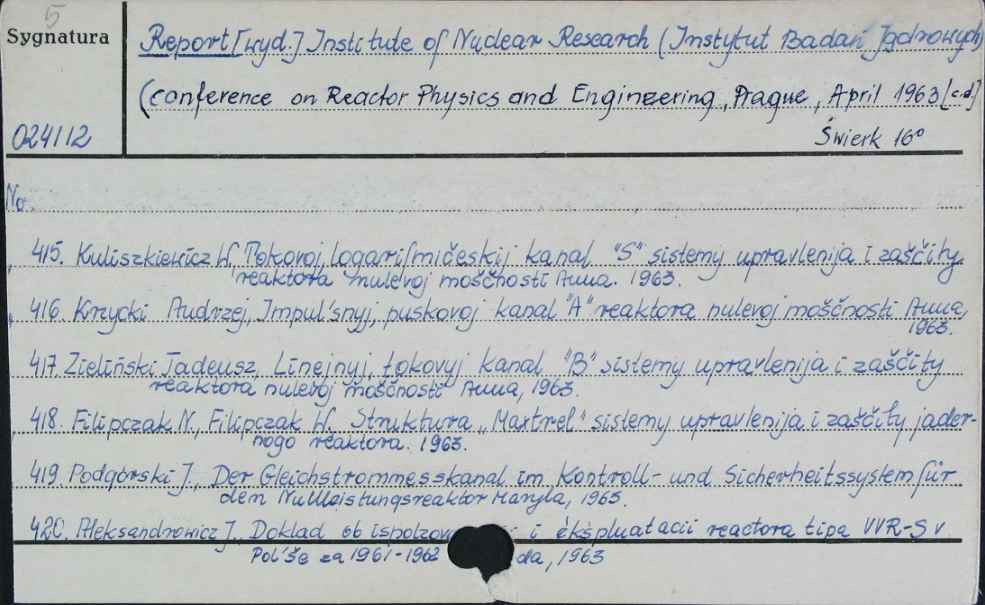 5
Sygnatura
Report [wyd.] Institute of Nuclear Research (Instytut Badań Jądrowych)
(conference on Reactor Physics and Engineering, Prague, April 1963 [c.d.]
024112
Świerk 16°
No
415. Kuliszkiewicz W., Tokovoj logarifmičeskij kanal "S" sistemy upravlenija i zaščity
reaktora nulevoj moščnosti Anna. 1963.
416. Krzycki Andrzej, Impul'snyj, puskovoj kanal "A" reaktora nulevoj moščnosti Anna,
1963.
417. Zieliński Tadeusz, Linejnyj, tokovyj kanal "B" sistemy upravlenija i zaščity
reaktora nulevoj moščnosti Anna, 1963.
418. Filipczak N., Filipczak W. Struktura „Maxtrel" sistemy upravlenija i zaščity jader-
nogo reaktora. 1963.
419. Podgórski J., Der Gleichstrommesskanal im Kontroll- und Sicherheitssystem für
dem Nulleistungsreaktor Maryla, 1963.
420. Aleksandrowicz J., Doklad ob ispolzov i èkspluatacii reactora tipa VVR-S v
Pol'še za 1961-1962 da, 1963